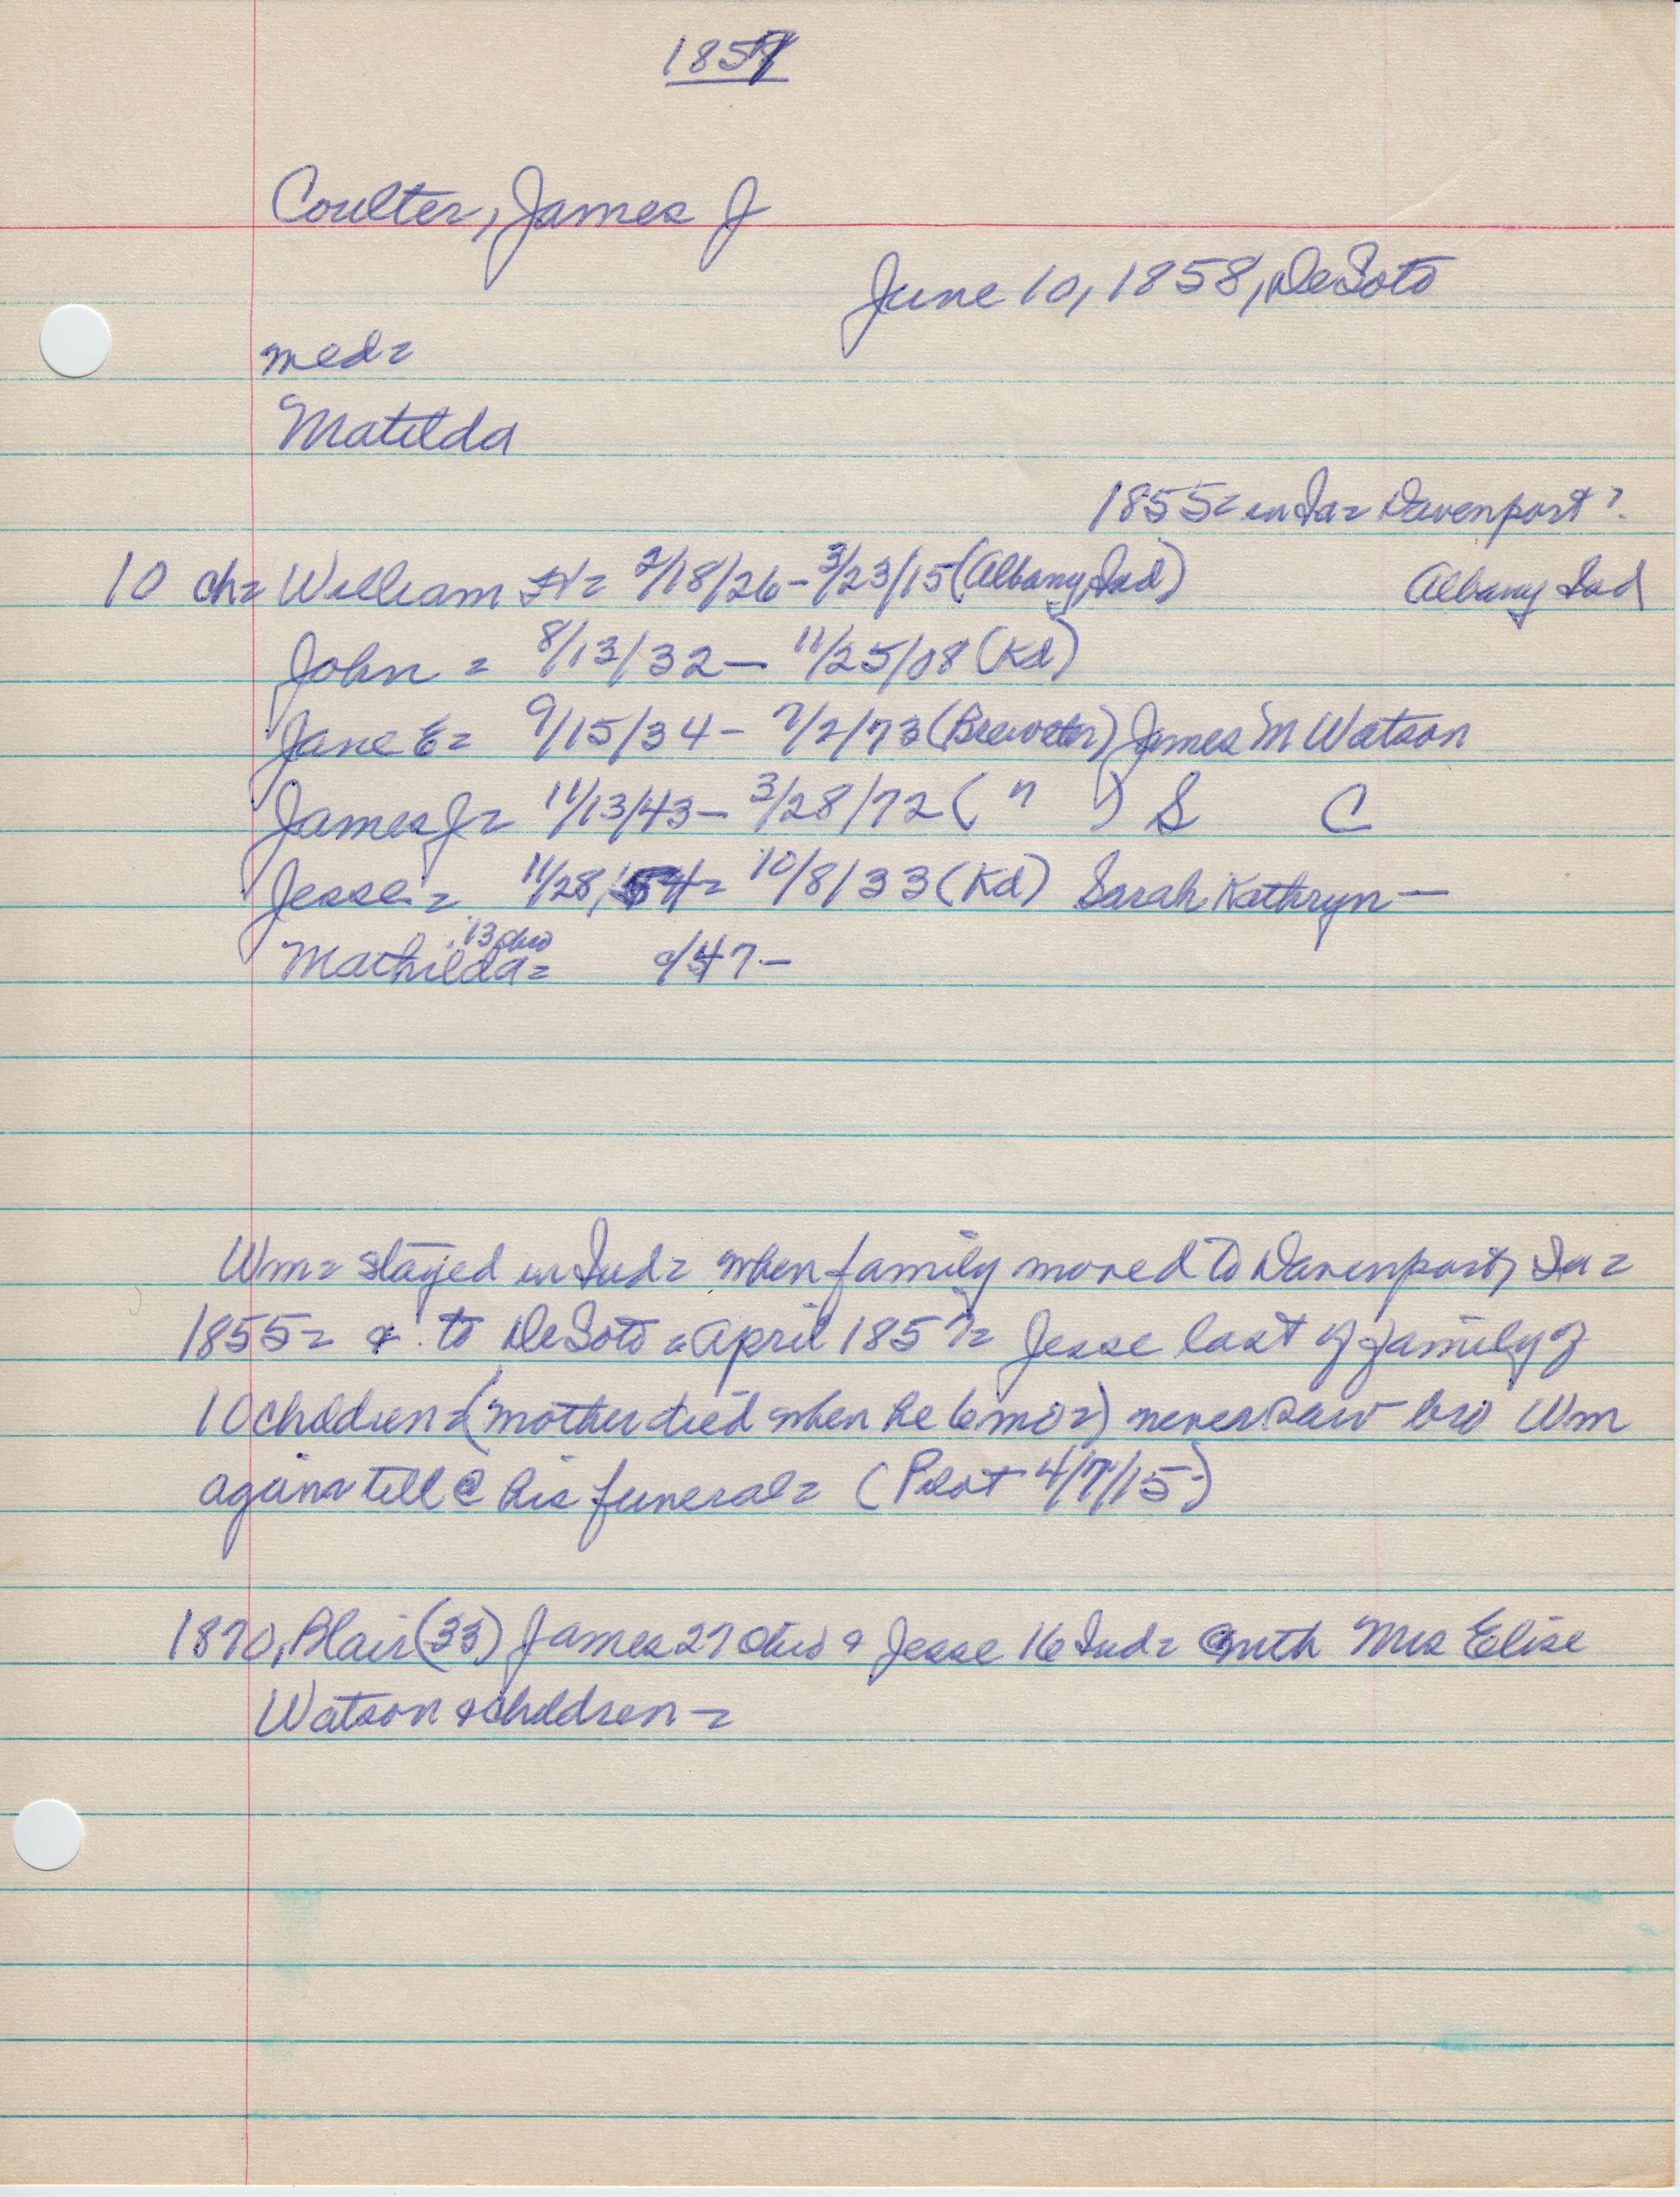 1857
Coulter, James J
June 10, 1858, DeSoto
med=
Matilda
1855= in Ia= Davenport?
10 ch= William H= 2/18/26 - 3/23/15 (Albany, Ind) Albany Ind
John = 8/13/32 - 11/25/08 (Kd)
Jane E= 9/15/34 - 7/2/73 (Brewster) James M Watson
James J= 11/13/43 - 3/28/72 ( " ) S C
Jesse = 11/28, 54 = 10/8/33 (Kd) Sarah Kathryn -
13 ohio
Mathilda= 47 -
Wm= stayed in Ind= when family moved to Davenport, Ia=
1855= & to DeSoto = April 1857= Jesse last of family of
10 children= (mother died when he 6 mo=) never saw bro Wm
again till @ his funeral= (Pilot 4/7/15)
1870, Blair (33) James 27 ohio & Jesse 16 Ind= with Mrs Elise
Watson & children =